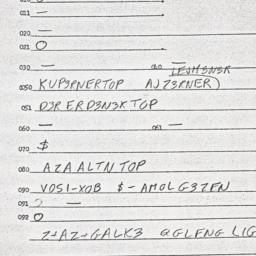 011 —
020 —
021 O
030 — 060 —
0350 KUP3RNERTOP AJZ3RNER)
051 D3R ERD3N3K TOP
060 — 061 —
070 $
080 AZA ALTN TOP
090 VOSI-XOB $-AMOLG3ZFN
091 —
092 O
Z+AZ+GALK3 @GLFNG LIG